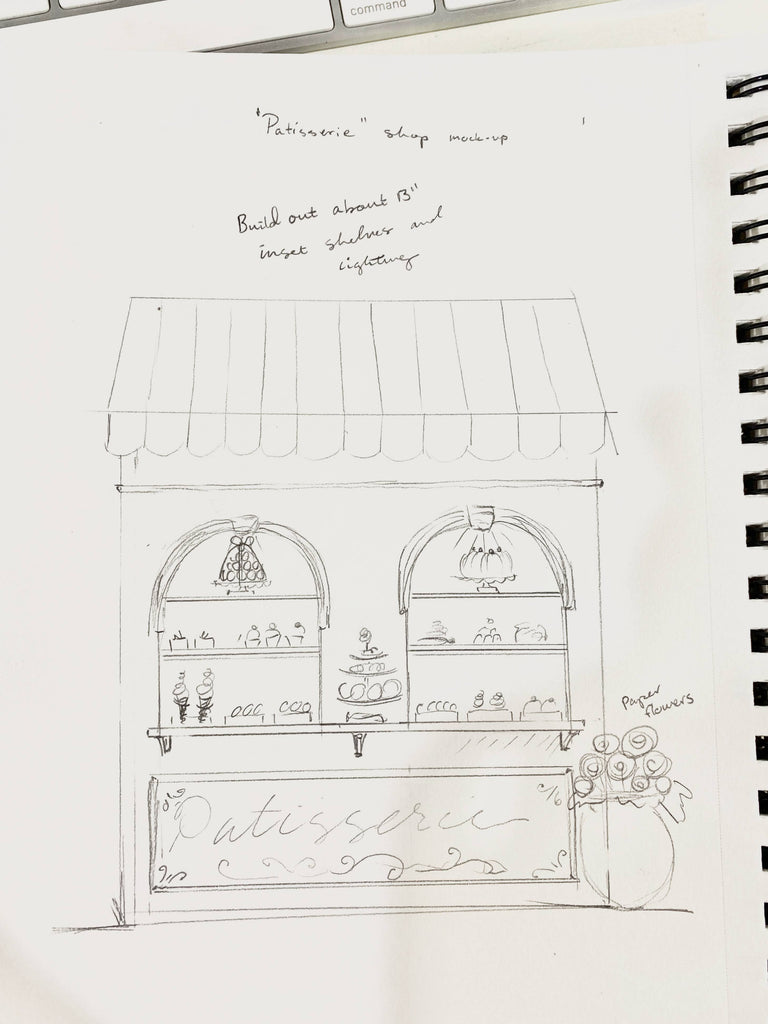 command
"Patisserie" shop mock-up
Build out about 13"
inset shelves and
lighting
Paper
flowers
Patisserie